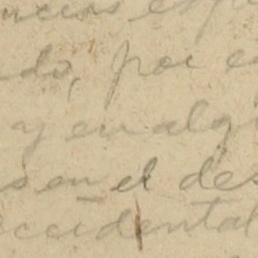 ado, por e
y en alg
s en el des
ccidental